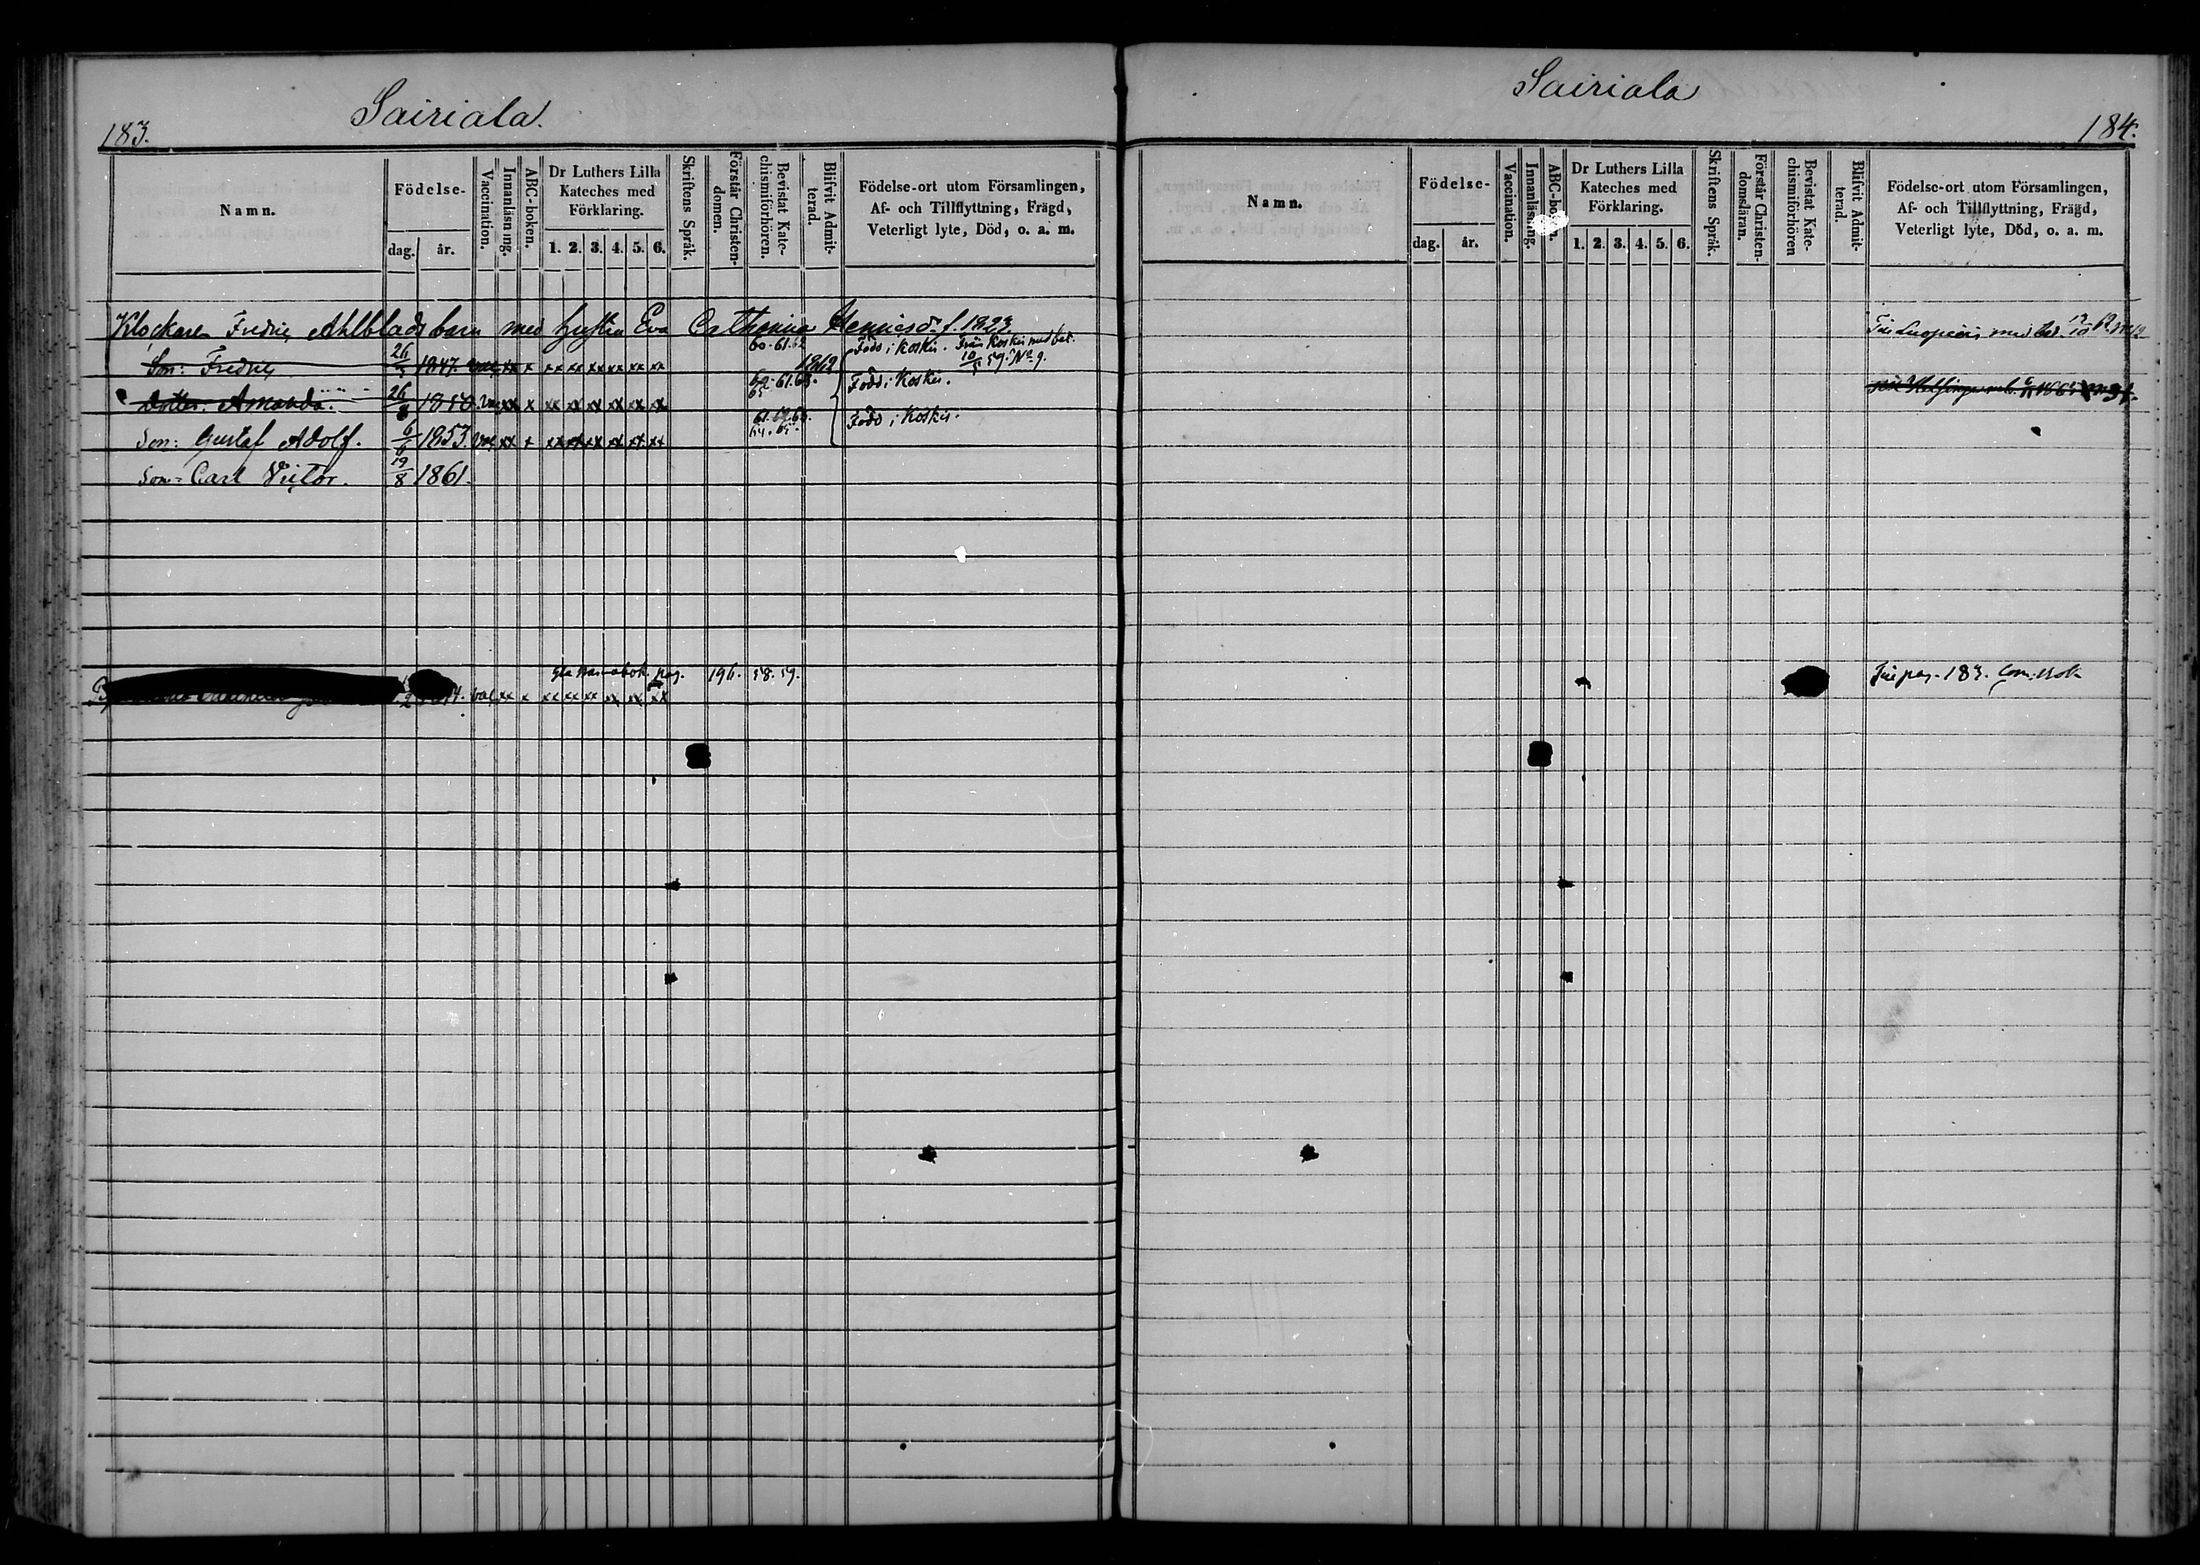 183.
Sairiala.
Namn.
Födelse-
dag.
år.
Vaccination.
Innanläsning.
ABC-boken.
Dr Luthers Lilla
Kateches med
Förklaring.
1. 2. 3. 4. 5. 6.
Skriftens Språk.
Förstår Christen-
domen.
Bevistat Kate-
chismiförhören.
Blifvit Admit-
terad.
Födelse-ort utom Församlingen,
Af- och Tillflyttning, Frägd,
Veterligt lyte, Död, o. a. m.
Klockaren Fredric Ahlblads barn med hustru Eva Catharina f. 1823.
Son: Fredric 26/5 1847. vac xx x xx xx xx xx xx xx 60. 61. 62 1862 Född i Koskis. Från Koskis med bet.
10/5 59. No 9.
Dotter: Amanda. 26/8 1850 xx x xx xx xx xx xx xx 61. 65 Född i Koskis.
Son: Gustaf Adolf. 6/6 1853 vac xx x xx xx xx xx xx xx 61. 64. 65. Född i Koskis.
Son: Carl Victor. 19/8 1861.
pag. 196. 58. 59.
4. vac xx x xx xx xx xx xx xx
Sairiala
184.
Namn.
Födelse-
dag.
år.
Vaccination.
Innanläsning.
ABC-boken.
Dr Luthers Lilla
Kateches med
Förklaring.
1. 2. 3. 4. 5. 6.
Skriftens Språk.
Förstår Christen-
domsläran.
Bevistat Kate-
chismiförhören
Blifvit Admit-
terad.
Födelse-ort utom Församlingen,
Af- och Tillflyttning, Frägd,
Veterligt lyte, Död, o. a. m.
Till Luopiois med bet.
Till pag. 183.